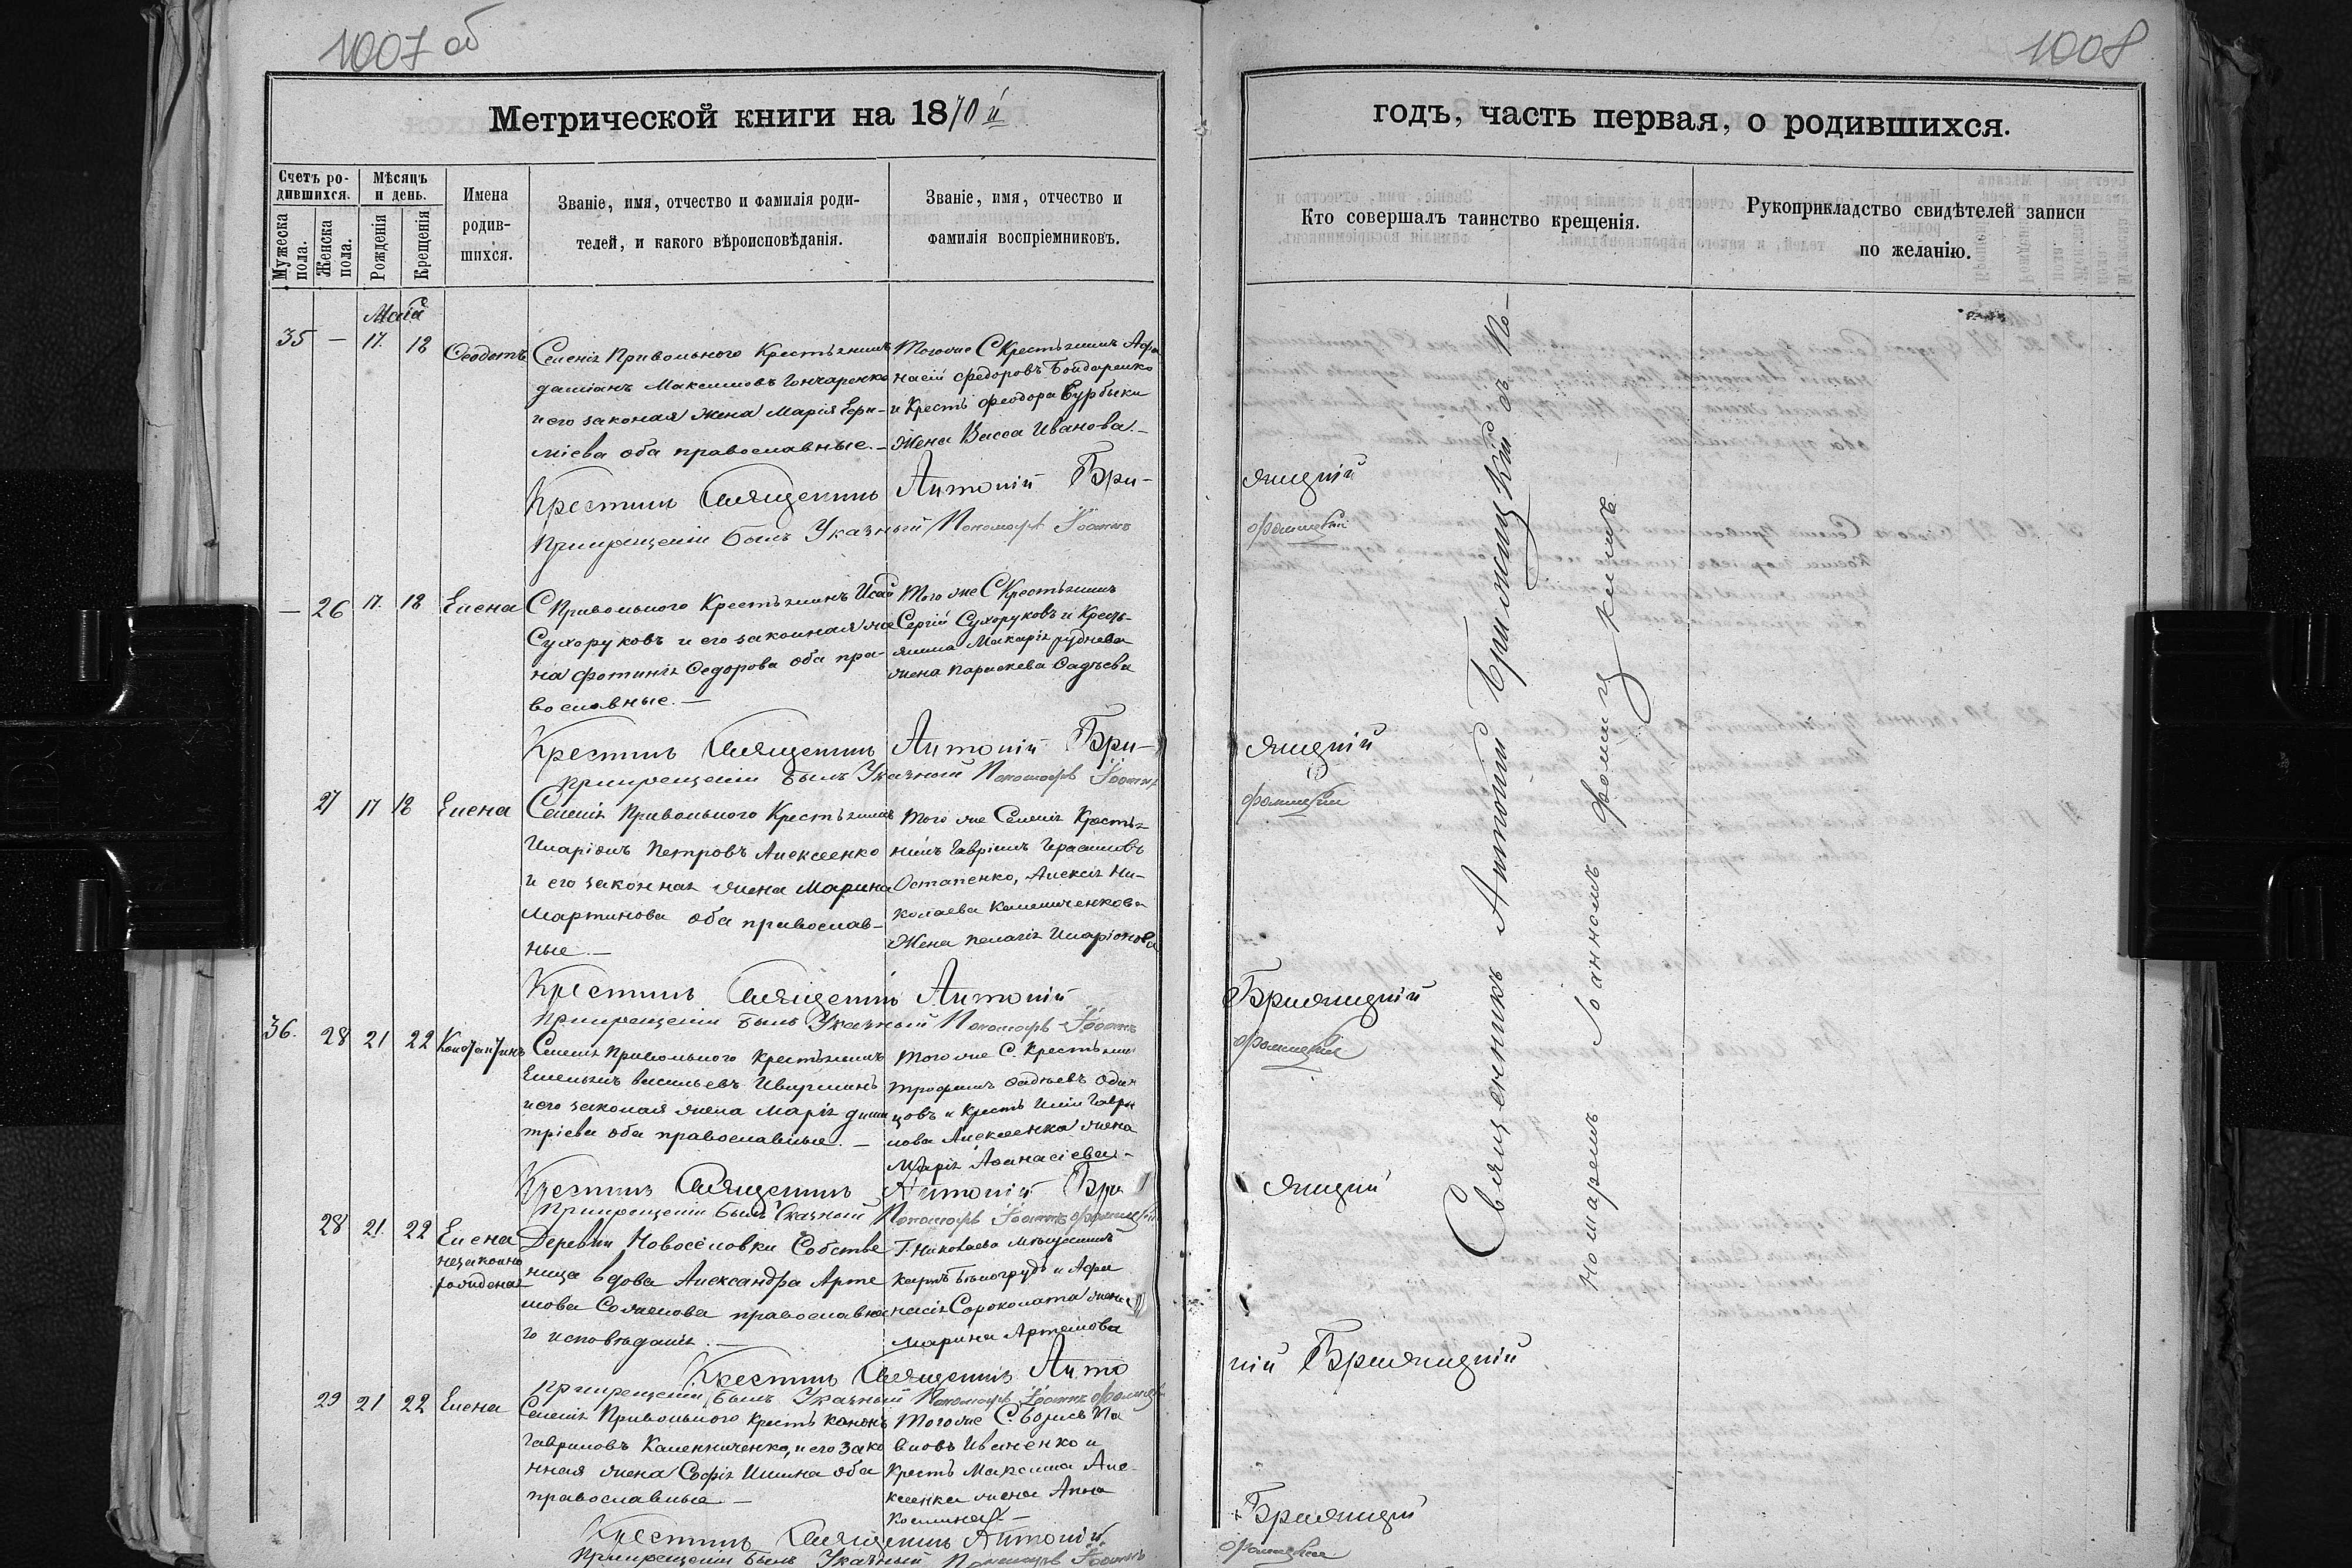 1007 об
1008
Метрической книги на 1870 й
годъ, часть первая, о родившихся.
Счетъ родившихся.
Мужеска пола.
Женска пола.
Мѣсяцъ и день.
Рожденія
Крещенія
Имена родившихся.
Званіе, имя, отчество и фамилія родителей, и какого вѣроисповѣданія.
Званіе, имя, отчество и фамилія воспріемниковъ.
Кто совершалъ таинство крещенія.
Рукоприкладство свидѣтелей записи по желанію.
Маія
35 — 17. 18 Ѳеодотъ
Селенія Привольного Крестьянинъ
даміанъ Максимовъ Гончаренко
и его законая жена Марія Ерм-
оба православные. —
Тогоже С Крестьянинъ Афа
насій Федоровъ Бондаренко
и Кресть Феодора
Жена Васса Иванова. —
Крестилъ Священникъ Антоній Бри-
яницкій
Прикрещеніи былъ Указный Пономарь Іоаннъ
Фомицкій
— 26 17. 18 Елена
С Привольного Крестьянинъ
Сухоруковъ и его законная же
на Фотинія Федорова оба пра-
вославные. —
Того же С Крестьянинъ
Сергій Сухоруковъ и Кресть-
янина Макарія руднева
жена параскева Фадѣева
Крестилъ Священникъ Антоній Бри-
яницкій
Прикрещеніи былъ Указный Пономарь Іоаннъ
Фомицкій
27 17 18 Елена
Селенія Привольного Крестьянинъ
Иларіонъ Петровъ Алексеенко
и его законная жена Марина
Мартинова оба православ-
ные. —
Того же Селенія Крестья
нинъ Гавріилъ Герасимовъ
Остапенко, Алексія Ни-
колаева
Жена пелагія Иларіонова
Крестилъ Священникъ Антоній
Брияницкій
Прикрещеніи былъ Указный Пономарь Іоаннъ
Фомицкій
36. 28 21 22 Константинъ
Селенія Привольного Крестьянинъ
Васильевъ
и его законая жена Марія дими
тріева оба православные. —
Того же С. Крестьянинъ
трофимъ Фадѣевъ Один
цовъ и Кресть Гаври
лова Алексеенка жена
Марія Афанасіева. —
Крестилъ Священникъ Антоній Бри
яницкій
Прикрещеніи былъ Указный Пономарь Іоаннъ Фомицкій
28 21. 22 Елена
незаконно
рожденая
Деревни Новосёловки Собстве
ница вдова Александра Арте
мова православна
го исповѣданія. —
Г. Николаева мѣщанинъ
Карпъ Бѣлогрудъ и Афа
насія Сороколата жена
Марина Артемова
Крестилъ Священникъ Анто
ній Брияницкій
Прикрещеніи былъ Указный Пономарь Іоаннъ
29 21 22 Елена
Селенія Привольного Кресть
Гавриловъ и его зако
нная жена Софія Ильина оба
православные. —
Тогоже С. Борисъ Па
вловъ Иваненко и
Кресть Максима Але-
ксеенка жена Анна
Космина. —
Крестилъ Священникъ Антоній
Брияницкій
Прикрещеніи былъ Указный Пономарь Іоаннъ
Фомицкій
Священникъ Антоній Брияницкій съ по-
номаремъ Іоанномъ Фомицкимъ